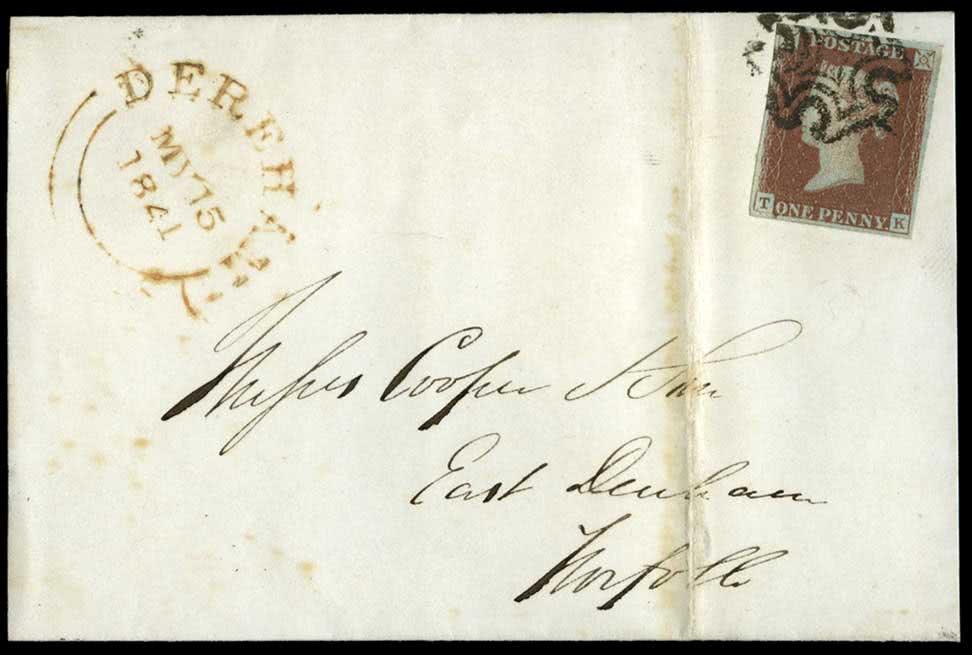 DEREHAM
MY 15
1841
POSTAGE
T ONE PENNY. K
Messrs Cooper & Son
East Dereham
Norfolk